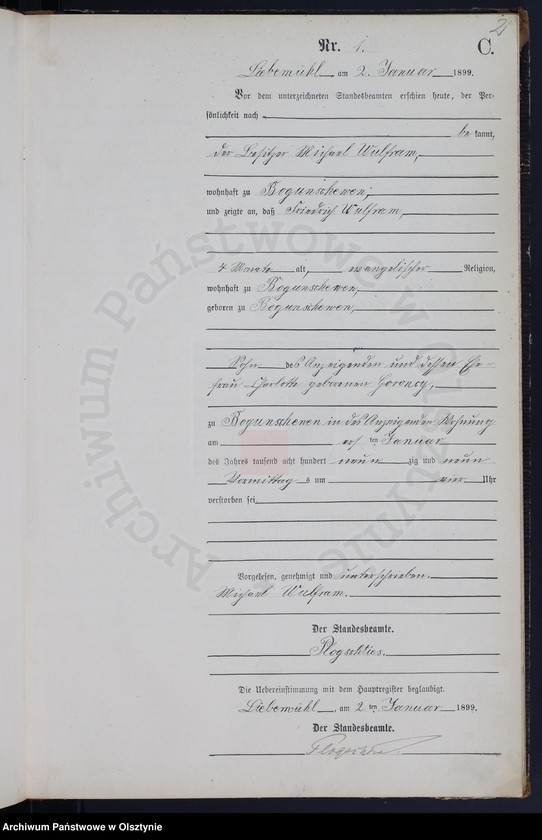 Nr. 1.
C.
Liebemühl, am 2. Januar 1899.
Vor dem unterzeichneten Standesbeamten erschien heute, der Per-
sönlichkeit nach
be kannt,
der Besitzer Michael Wulfram,
wohnhaft zu Bogunschewen,
und zeigte an, daß Friedrich Wulfram,
4 Monate alt, evangelischer Religion,
wohnhaft zu Bogunschewen,
geboren zu Bogunschewen,
Sohn des Anzeigenden und dessen Ehe-
frau Charlotte geborenen
zu Bogunschewen in des Anzeigenden Wohnung
am ersten Januar
des Jahres tausend acht hundert neun zig und neun
Vormittags um vier Uhr
verstorben sei.
Vorgelesen, genehmigt und unterschrieben.
Michael Wulfram.
Der Standesbeamte.
Plogschties.
Die Uebereinstimmung mit dem Hauptregister beglaubigt.
Liebemühl, am 2 ten Januar 1899.
Der Standesbeamte.
Archiwum Państwowe w Olsztynie
Archiwum Państwowe w Olsztynie